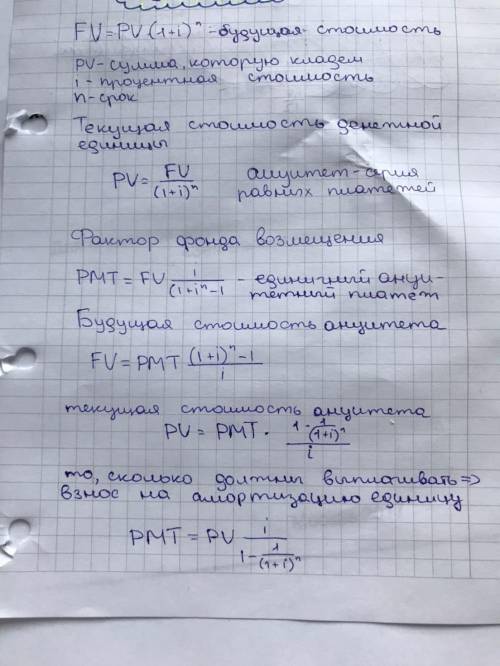 FV = PV (1+i)ⁿ - будущая стоимость
PV - сумма, которую кладем
i - процентная стоимость
n - срок
Текущая стоимость денежной
единицы
PV = FV / (1+i)ⁿ аннуитет - серия
равных платежей
Фактор фонда возмещения
PMT = FV i / (1+iⁿ - 1 - единичный ануи-
тетный платеж
Будущая стоимость ануитета
FV = PMT (1+i)ⁿ - 1 / i
текущая стоимость ануитета
PV = PMT · 1 - 1/(1+i)ⁿ / i
то, сколько должны выплачивать =>
взнос на амортизацию единицу
PMT = PV i / 1 - 1/(1+i)ⁿ